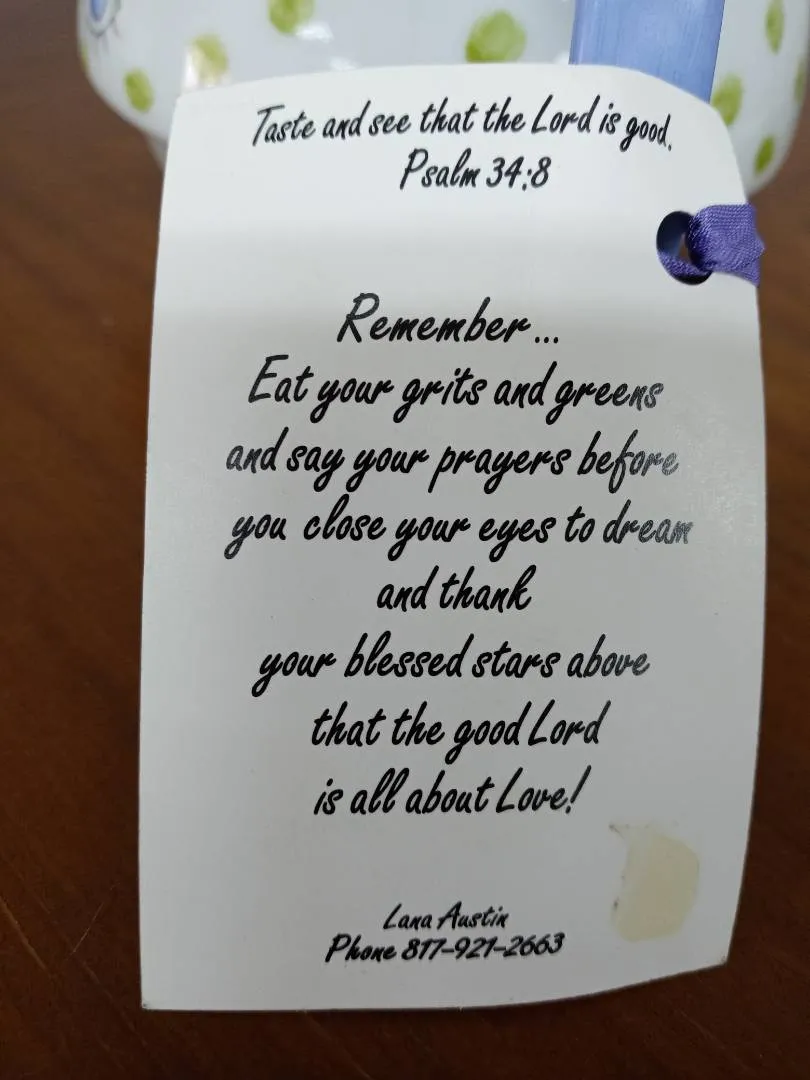 Taste and see that the Lord is good.
Psalm 34:8
Remember...
Eat your grits and greens
and say your prayers before
you close your eyes to dream
and thank
your blessed stars above
that the good Lord
is all about Love!
Lana Austin
Phone 817-921-2663